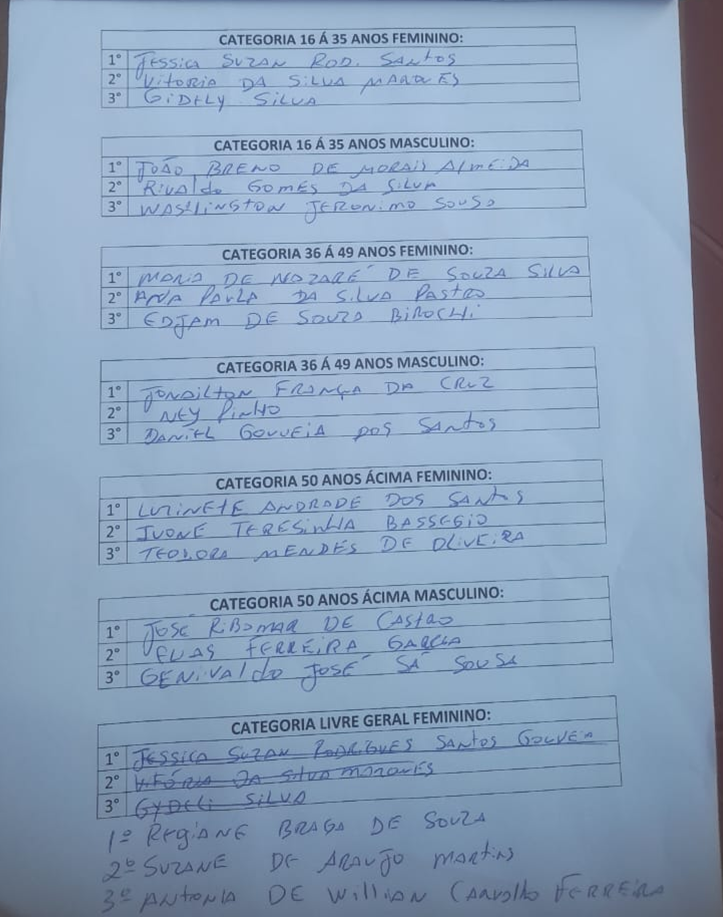 CATEGORIA 16 Á 35 ANOS FEMININO:
1° JESSICA SUZAN ROD. SANTOS
2° VITORIA DA SILVA MARQUES
3° GIDELY SILVA
CATEGORIA 16 Á 35 ANOS MASCULINO:
1° JOÃO BRENO DE MORAIS ALMEIDA
2° RIVALDO GOMES DA SILVA
3° WASHINGTON JERONIMO SOUSA
CATEGORIA 36 Á 49 ANOS FEMININO:
1° MARIA DE NAZARÉ DE SOUZA SILVA
2° ANA PAULA DA SILVA PASTRO
3° EDJAM DE SOUZA BIROCHI
CATEGORIA 36 Á 49 ANOS MASCULINO:
1° JONDILTON FRANÇA DA CRUZ
2° NEY PINHO
3° DANIEL GOUVEIA DOS SANTOS
CATEGORIA 50 ANOS ÁCIMA FEMININO:
1° LUZINETE ANDRADE DOS SANTOS
2° IVONE TERESINHA BASSEGIO
3° TEODORA MENDES DE OLIVEIRA
CATEGORIA 50 ANOS ÁCIMA MASCULINO:
1° JOSÉ RIBOMAR DE CASTRO
2° ELIAS FERREIRA GARCIA
3° GENIVALDO JOSÉ SÁ SOUSA
CATEGORIA LIVRE GERAL FEMININO:
1° JESSICA SUZAN RODRIGUES SANTOS GOUVEIA
2° VITÓRIA DA SILVA MARQUES
3° GYDELI SILVA
1º REGIANE BRAGA DE SOUZA
2º SUZANE DE ARAUJO MARTINS
3º ANTONIA DE WILLIAN CARVALHO FERREIRA